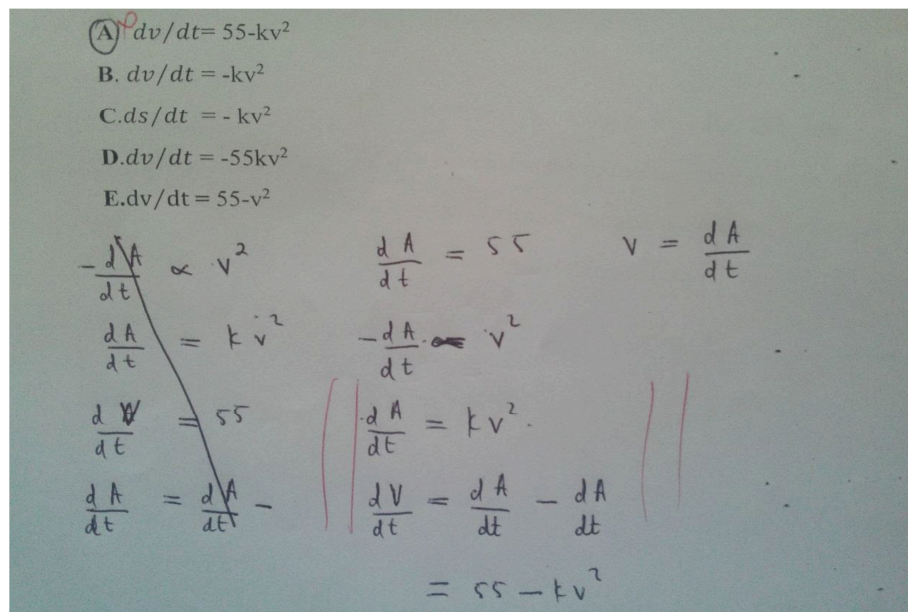 A dv/dt= 55-kv²
B. dv/dt = -kv²
C.ds/dt = - kv²
D.dv/dt = -55kv²
E.dv/dt = 55-v²
- dA/dt ∝ v²
dA/dt = k v²
d V/dt = 55
dA/dt = dA/dt -
dA/dt = 55
- dA/dt ∝ v²
dA/dt = kv²
dV/dt = dA/dt - dA/dt
= 55 - kv²
v = dA/dt